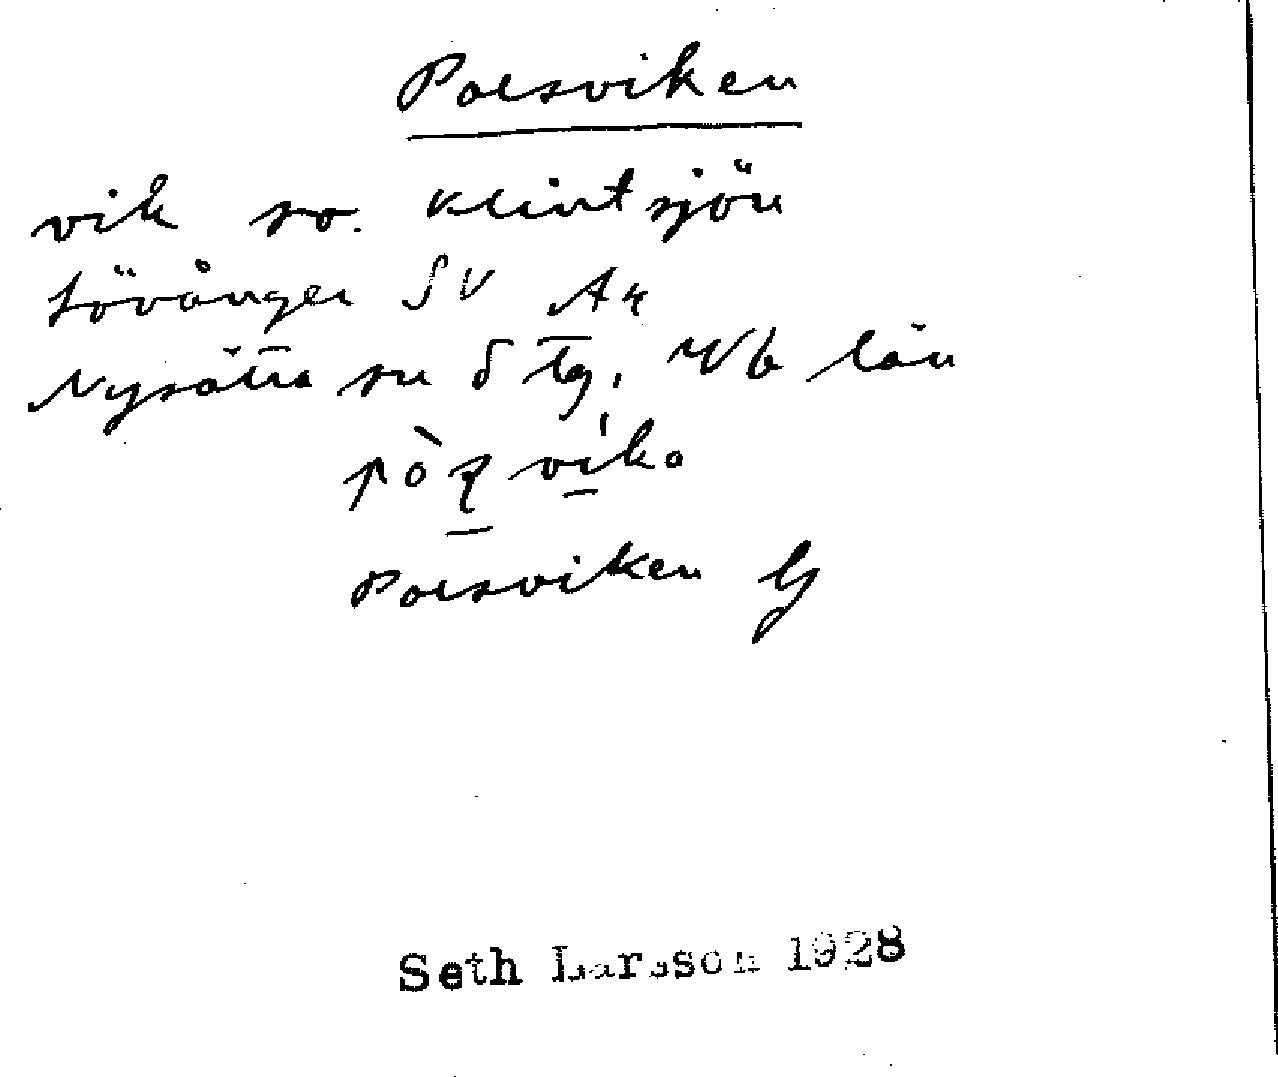 Porsviken
vik so. Klintsjön
Lövånger SV Ak
Nysätra sn S Tg. Vb län
Porsviken
Seth Larsson 1928